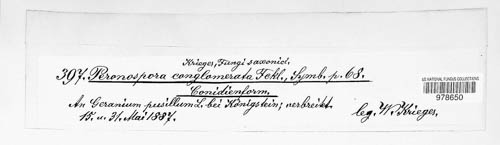 Krieger, Fungi saxonici.
397. Peronospora conglomerata Fckl., Symb. p. 68.
Conidienform.
An Geranium pusillum L. bei Königstein; verbreitet.
15. u. 31. Mai 1887.
leg. W. Krieger.
US NATIONAL FUNGUS COLLECTIONS
978650